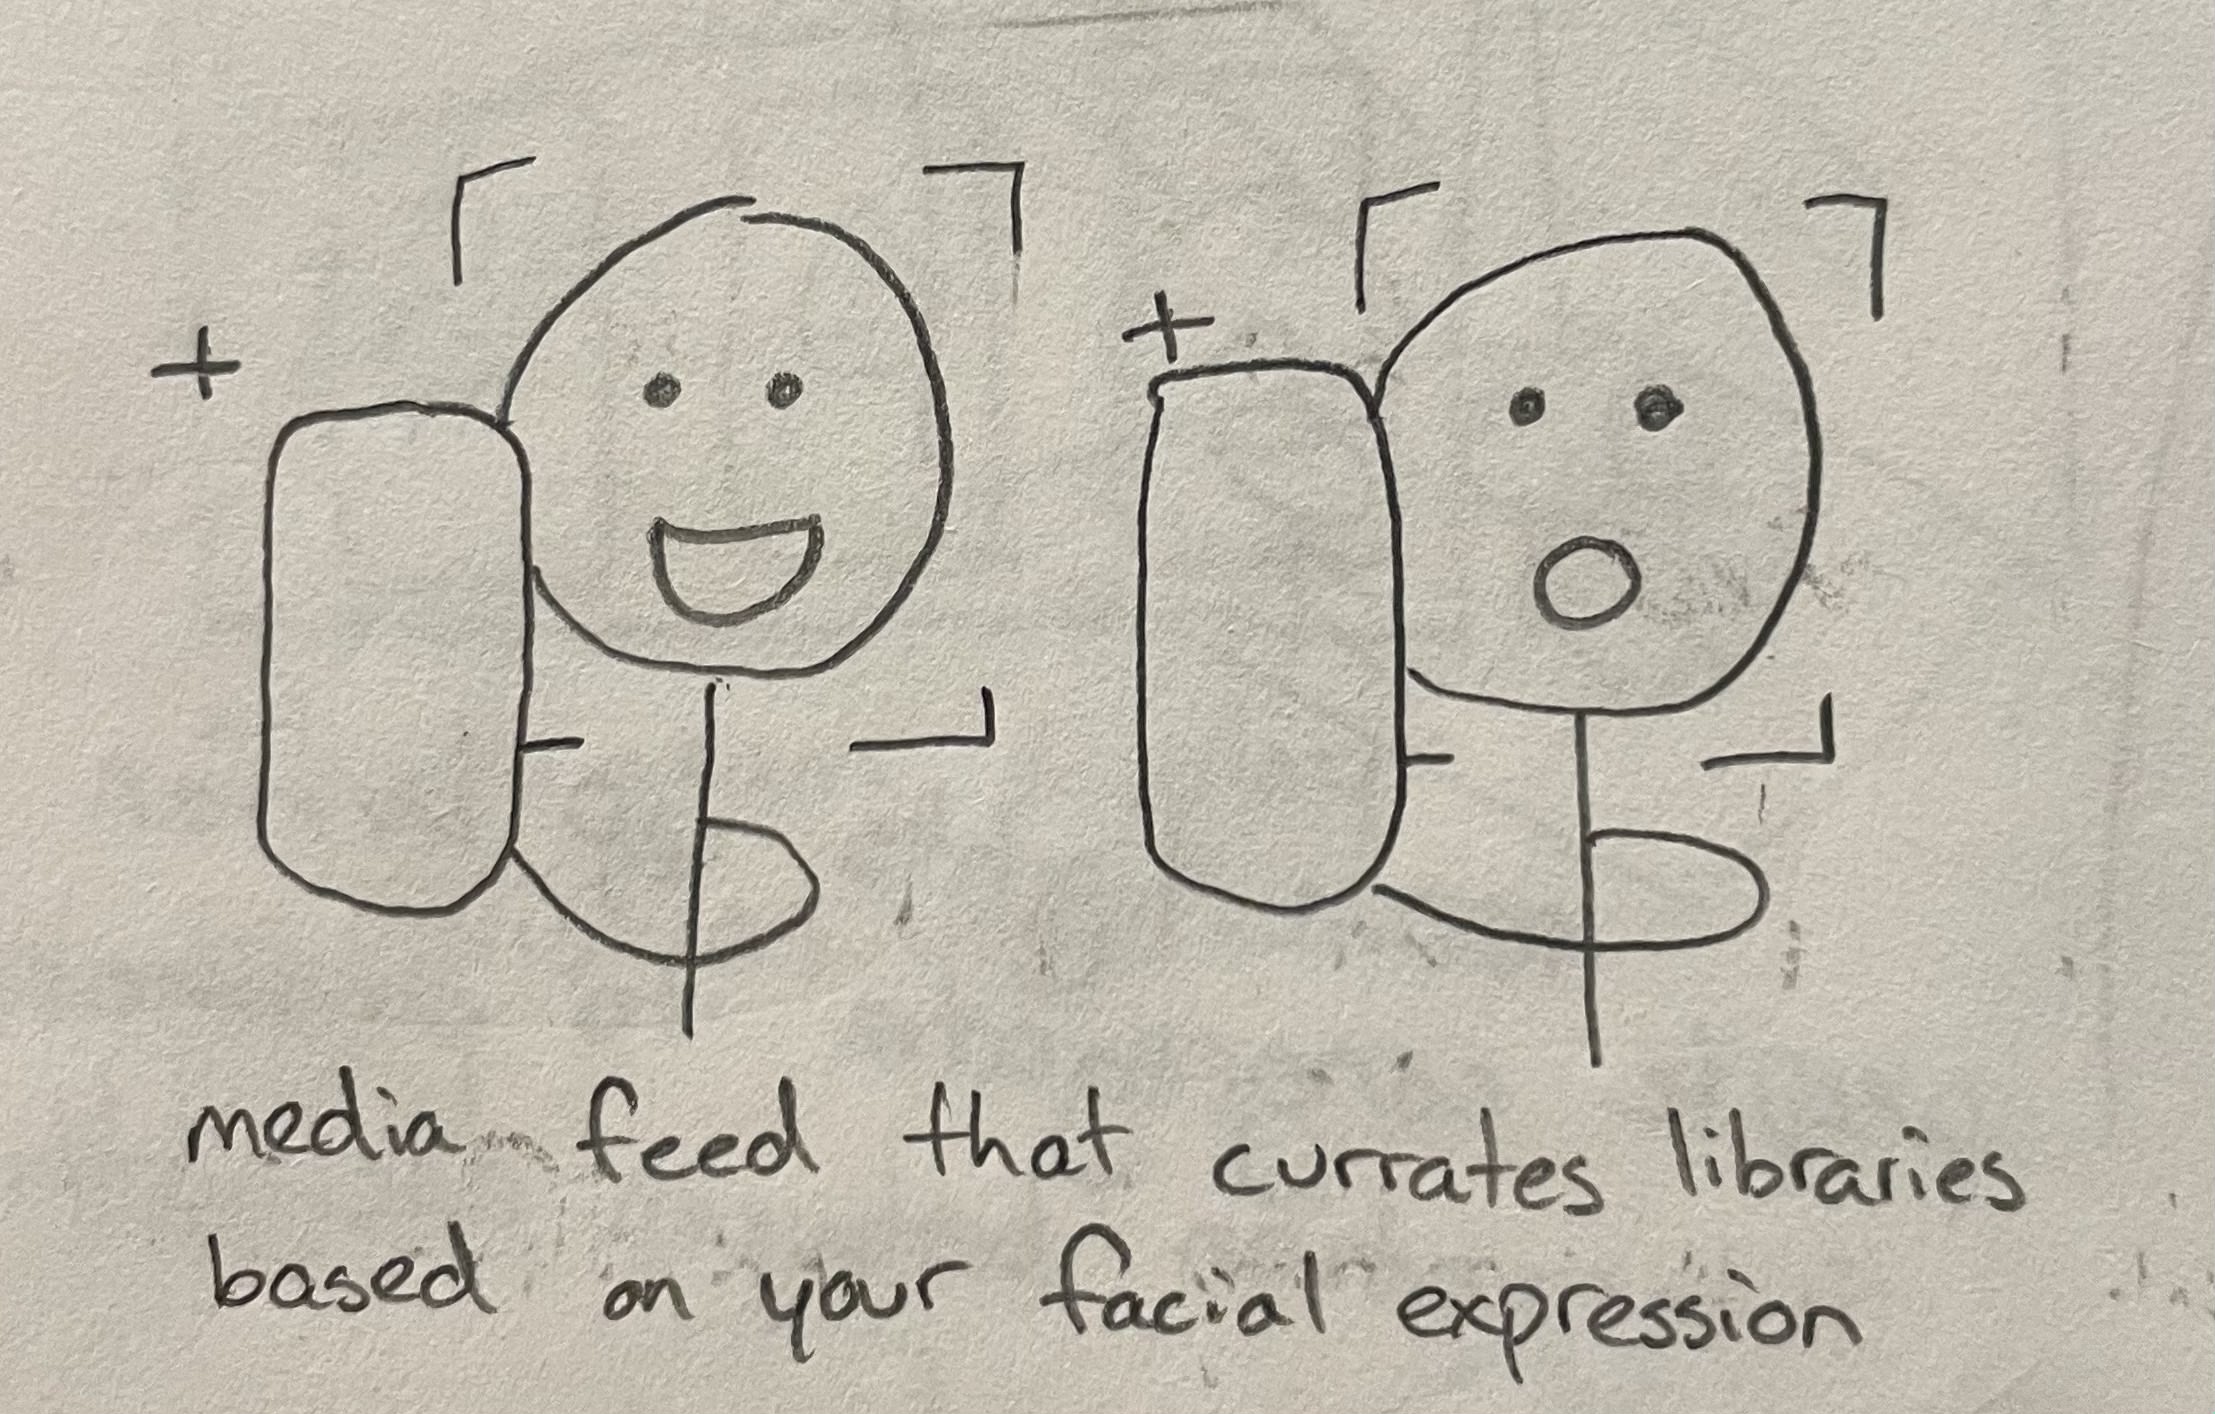 media feed that currates libraries
based on your facial expression